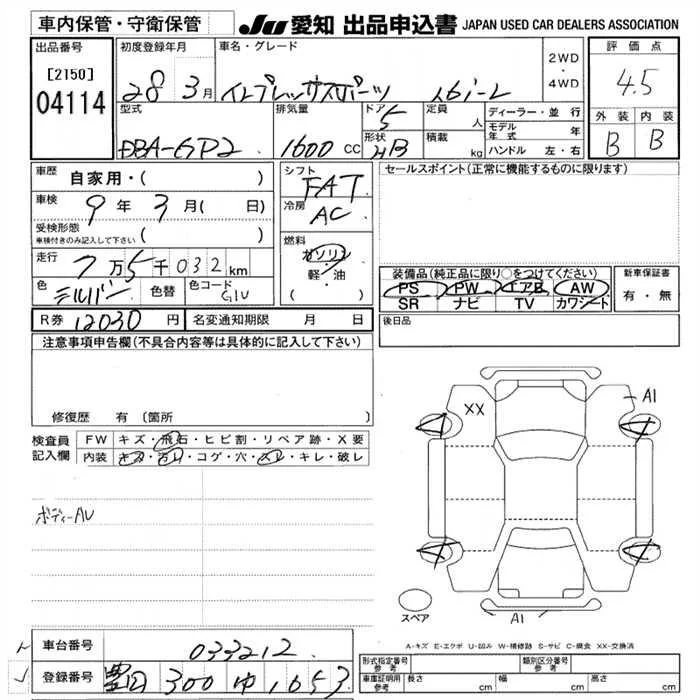 車内保管・守衛保管
JU 愛知 出品申込書 JAPAN USED CAR DEALERS ASSOCIATION
出品番号
[2150]
04114
初度登録年月
28 3月
車名・グレード
インプレッサスポーツ 1.6i-L
2WD
・
4WD
評価点
4.5
外装 内装
B B
型式
DBA-GP2
排気量
1600 CC
ドア
5
形状
HB
定員
人
積載
kg
ディーラー・並行
モデル年式 年
ハンドル 左・右
車歴
自家用・( )
車検
9年 3月( 日)
受検形態
車検付きのみ記入して下さい ( )
走行
7万5千032km
色
シルバー
色替
色コード
G1U
R券 12030 円
名変通知期限 月 日
シフト
FAT
冷房
AC
燃料
ガソリン
軽・油
( )
セールスポイント(正常に機能するものに限ります)
装備品(純正品に限り○をつけてください)
PS PW エアB AW
SR ナビ TV カワシート
新車保証書
有・無
後日品
注意事項申告欄(不具合内容等は具体的に記入して下さい)
修復歴 有 〔箇所 〕
検査員
記入欄
FW キズ・飛石・ヒビ割・リペア跡・X要
内装 キズ・汚レ・コゲ・穴・スレ・キレ・破レ
ボディーAU
XX
A1
A1
スペア
A-キズ E-エクボ U-凹み W-補修跡 S-サビ C-腐食 XX-交換済
車台番号
033212
登録番号
豊田 300 ゆ 1653
形式指定番号
参考
類別区分番号
参考
車庫証明用
参考
長さ cm 幅 cm 高さ cm